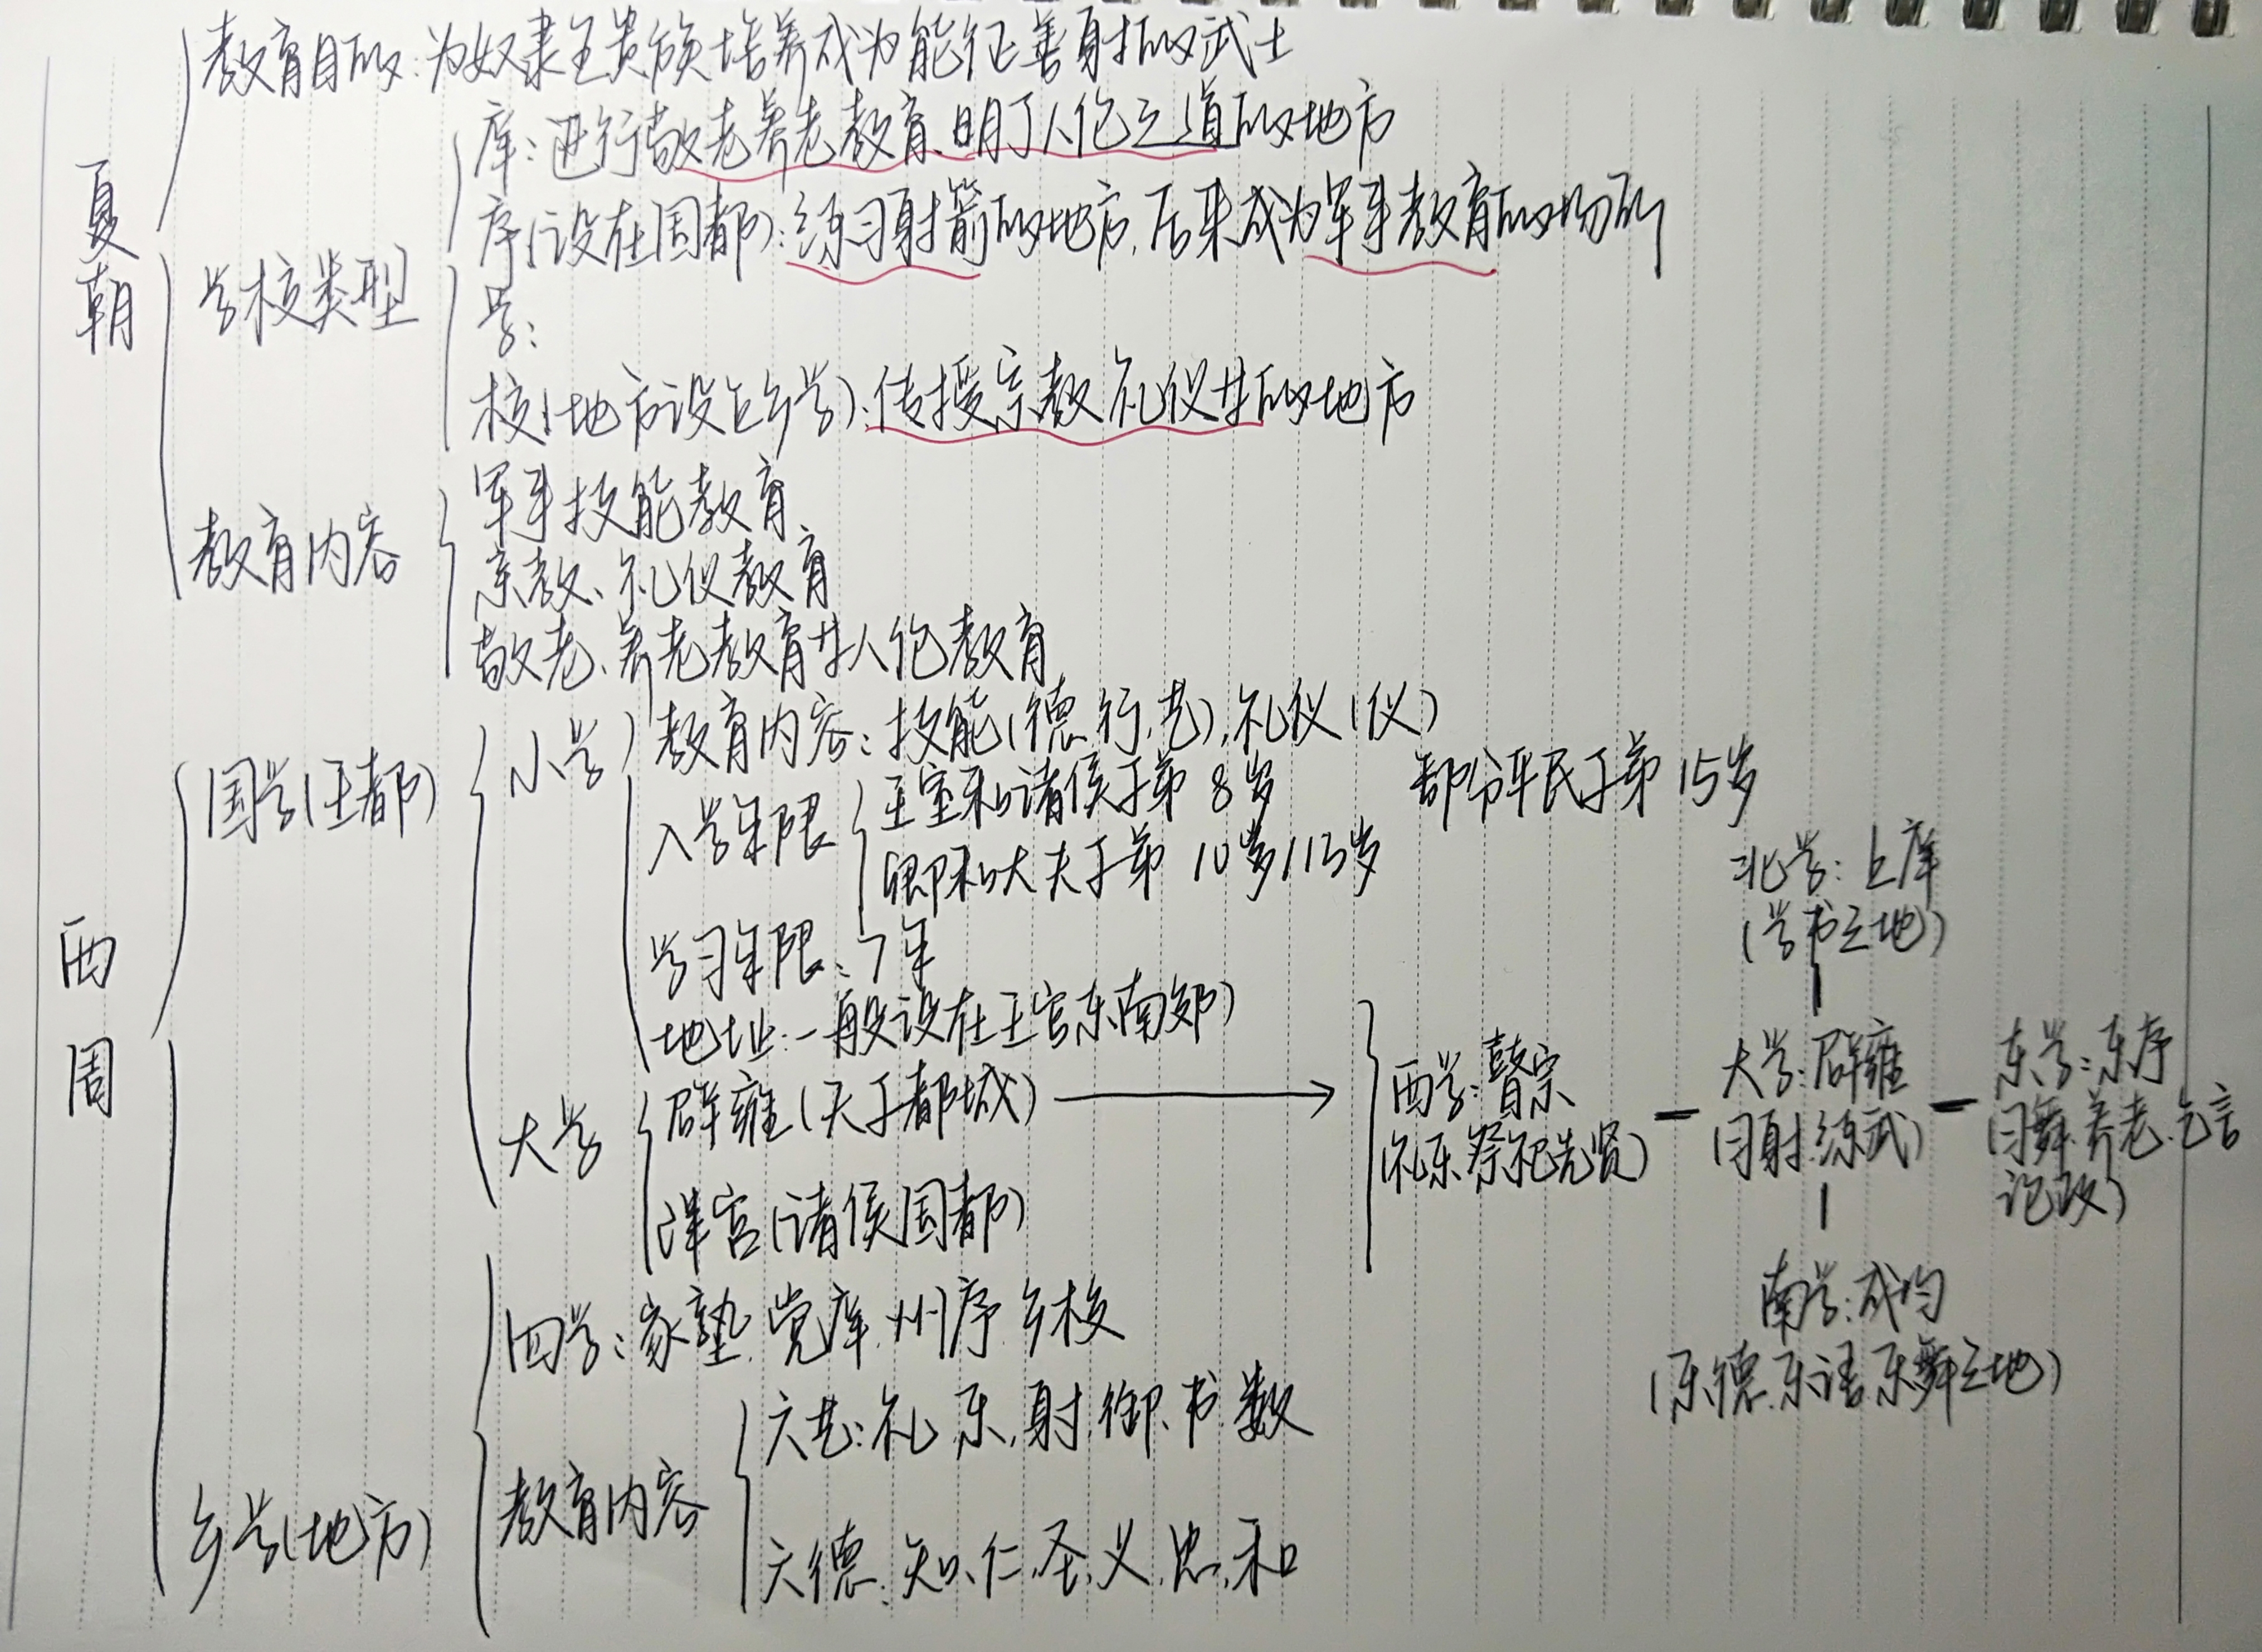 教育目的:为奴隶主贵族培养成为能征善射的武士
夏朝
学校类型
庠:进行敬老养老教育、明了人伦之道的地方
序(设在国都):练习射箭的地方,后来成为军事教育的场所
学:
校(地方设立乡学):传授宗教礼仪等的地方
教育内容
军事技能教育
宗教、礼仪教育
敬老、养老教育等人伦教育
西周
国学(王都)
小学
教育内容:技能(德、行、艺),礼仪(仪)
入学年限
王室和诸侯子弟 8岁
部份平民子弟 15岁
卿和大夫子弟 10岁/13岁
学习年限:7年
地址:一般设在王宫东南郊)
大学
辟雍(天子都城)
泮宫(诸侯国都)
西学:瞽宗
(礼乐.祭祀先贤)
北学:上庠
(学书之地)
大学:辟雍
(习射.练武)
东学:东序
(习舞.养老.乞言
论政)
南学:成均
(乐德.乐语.乐舞之地)
乡学(地方)
四学:家塾.党庠.州序.乡校
教育内容
六艺:礼,乐,射,御,书,数
六德:知、仁、圣,义,忠,和